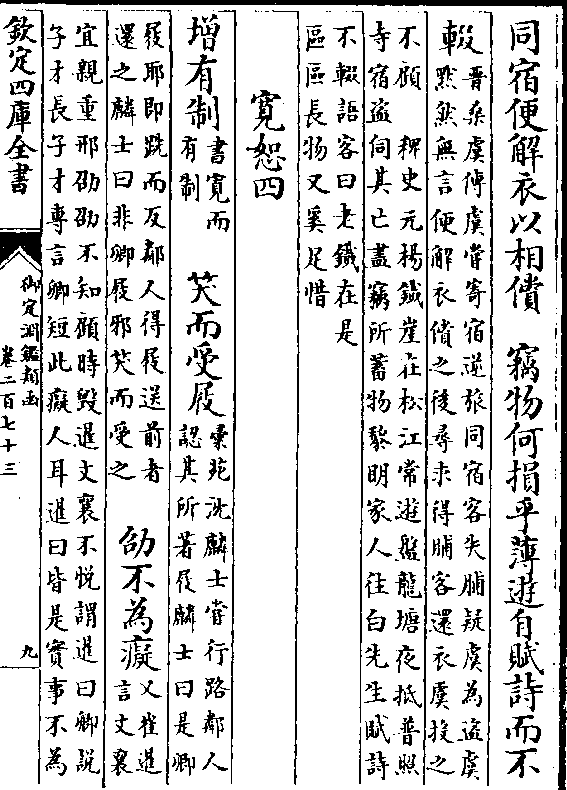 同宿便解衣以相償　竊物何損乎薄遊自賦詩而不
輟
晉桑虞傳虞嘗寄宿逆旅同宿客失脯疑虞為盜虞
默然無言便解衣償之後尋求得脯客還衣虞投之
不顧　稗史元楊鐵崖在松江常遊盤龍塘夜抵普照
寺宿盜伺其亡盡竊所蓄物黎明家人往白先生賦詩
不輟語客曰老鐵在是
區區長物又奚足惜
寬恕四
增有制
書寬而
有制
笑而受屐
彚苑沈麟士嘗行路鄰人
認其所著屐麟士曰是卿
屐耶即跣而反鄰人得屐送前者
還之麟士曰非卿屐邪笑而受之
卲不為癡
又崔暹
言文襄
宜親重邢卲卲不知顧時毀暹文襄不悅謂暹曰卿說
子才長子才專言卿短此癡人耳暹曰皆是實事不為
欽定四庫全書
御定淵鑑類函
卷二百七十三
九